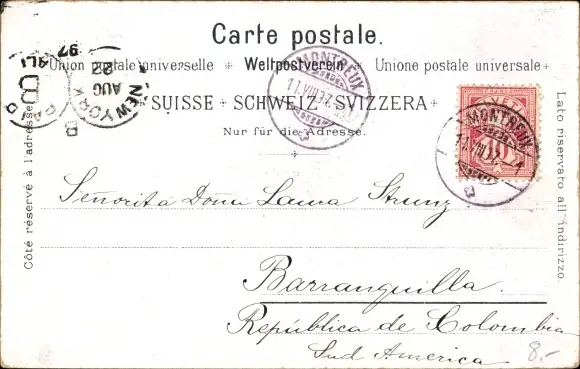 Carte postale.
Union postale universelle * Weltpostverein * Unione postale universale
SUISSE * SCHWEIZ * SVIZZERA
Nur für die Adresse.
Côté réservé à l'adresse
Lato riservato all' indirizzo.
MONTREUX
11.VIII.97
MONTREUX
11.VIII.97.-1
NEW YORK
AUG
22
PAID
ALL
B
97
D
HELVETIA
FRANCO
10
Señorita Doña Laura Strunz
Barranquilla.
República de Colombia
Sud America
8.-